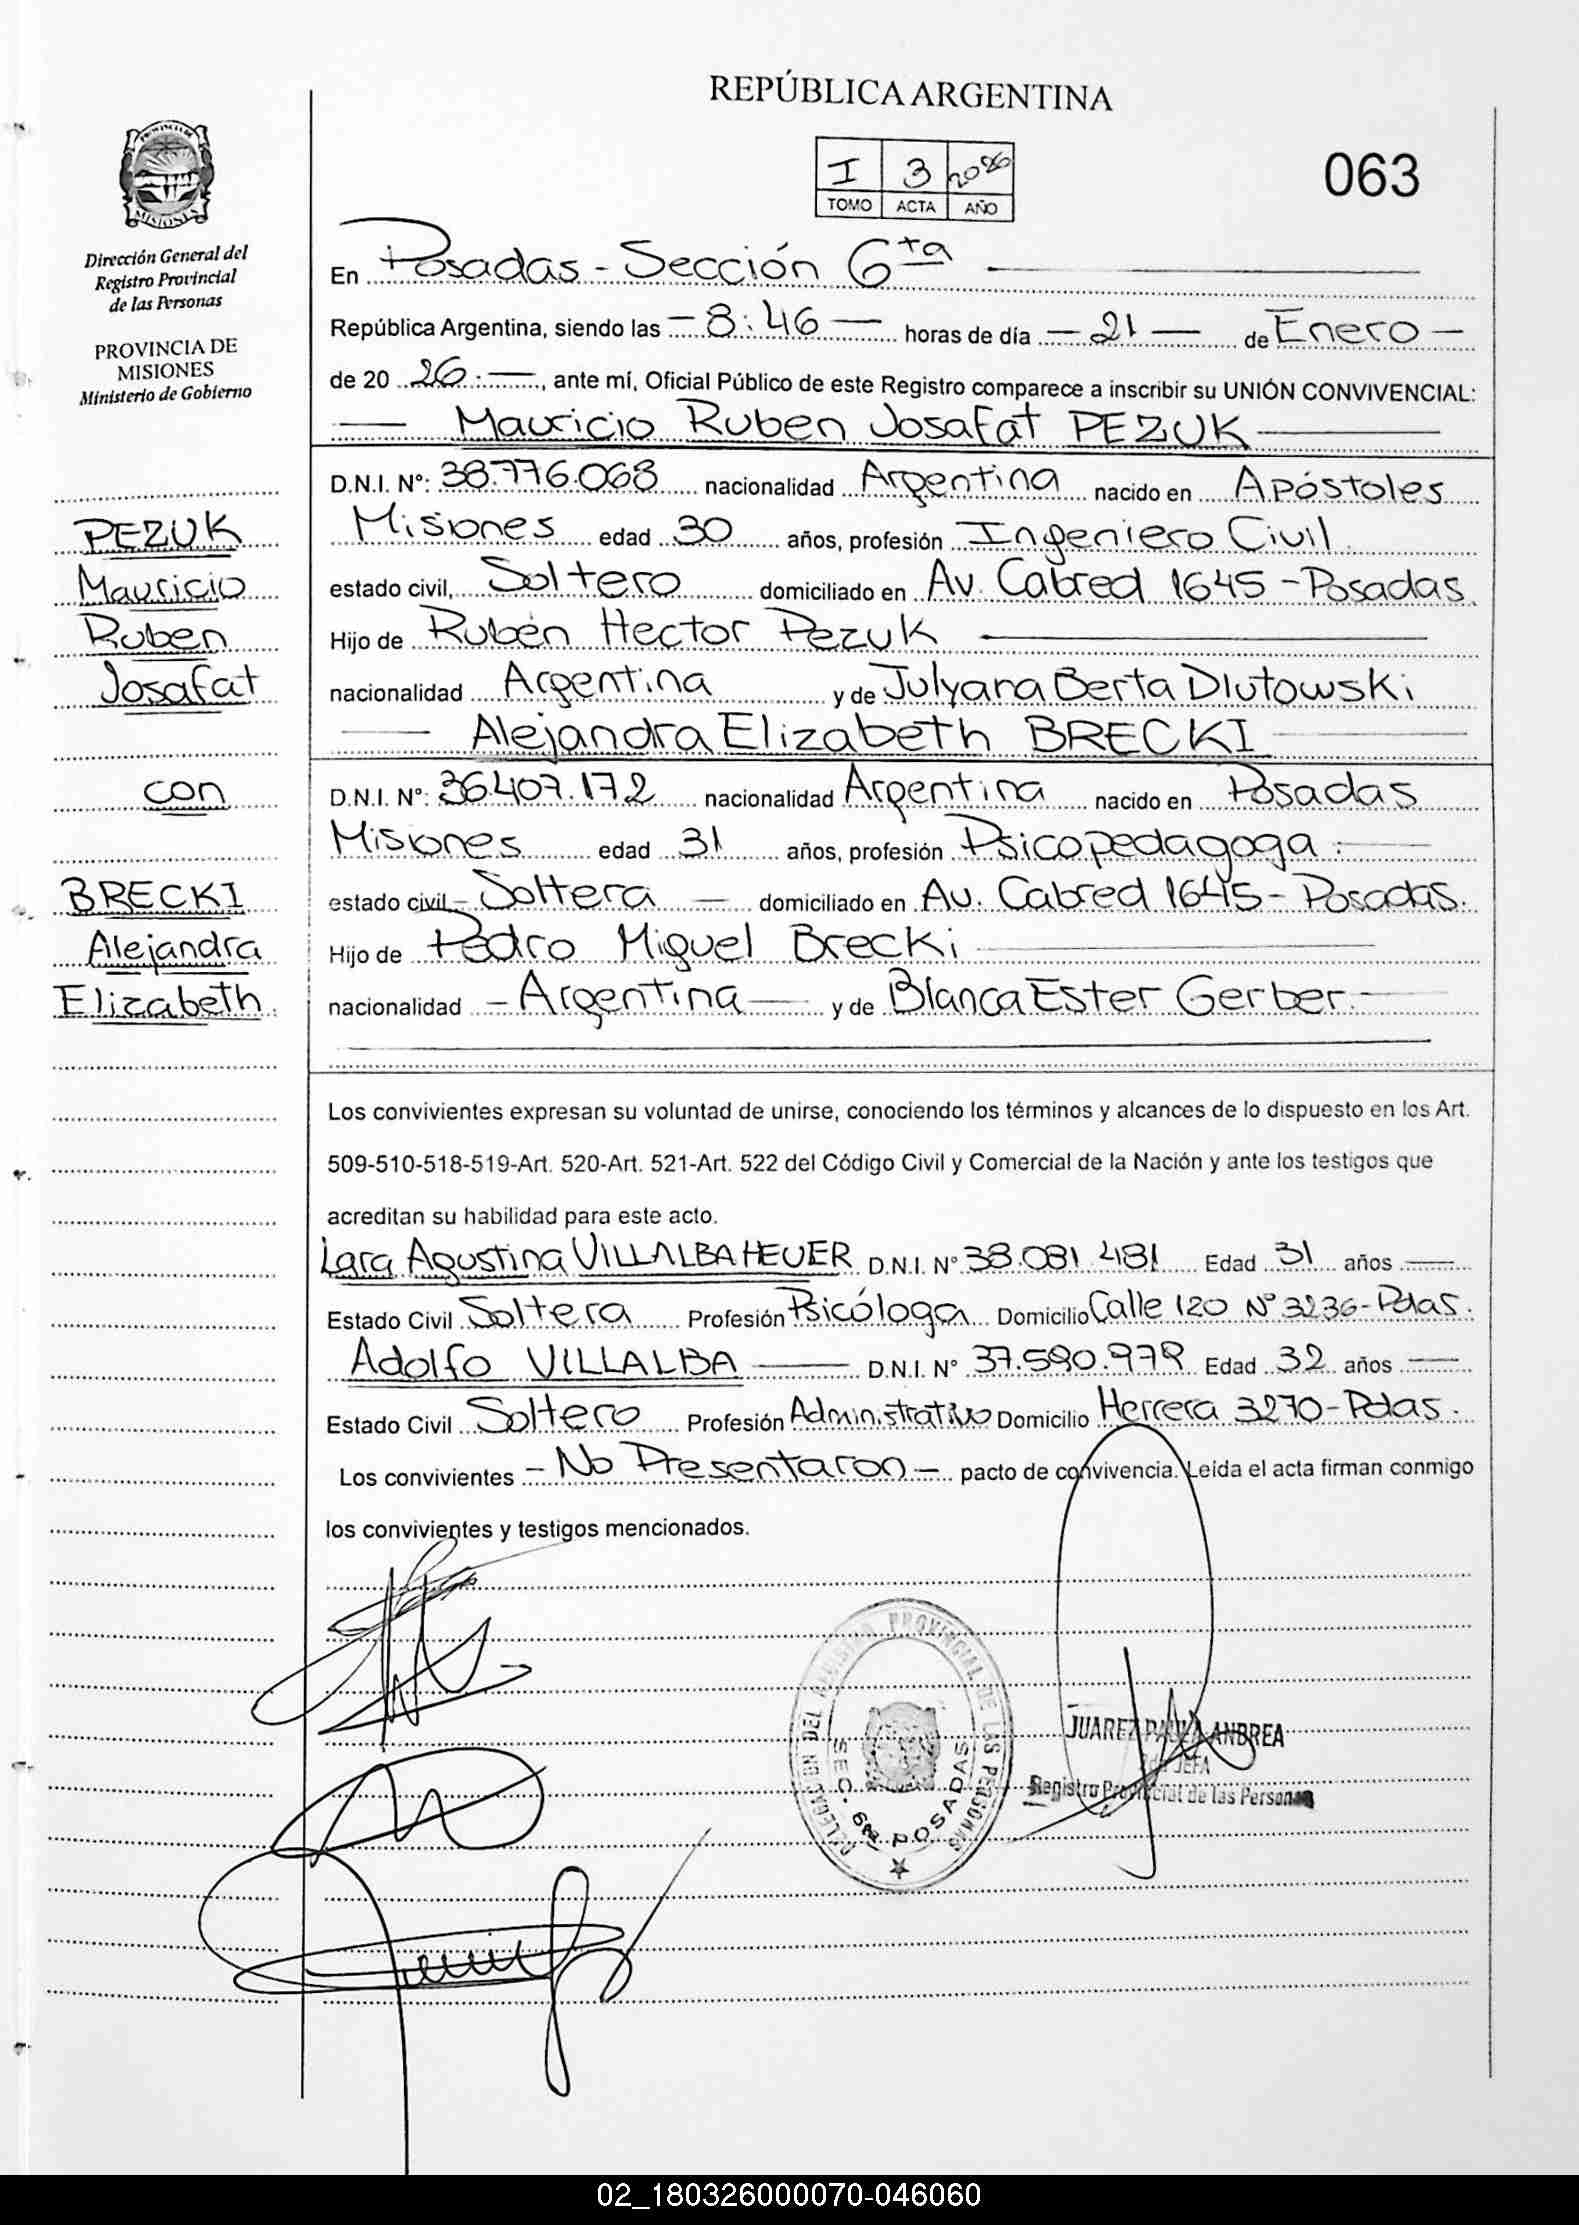 REPÚBLICA ARGENTINA
PROVINCIA DE
MISIONES
I 3 2026
TOMO ACTA AÑO
063
Dirección General del
Registro Provincial
de las Personas
PROVINCIA DE
MISIONES
Ministerio de Gobierno
En Posadas - Sección 6ta
República Argentina, siendo las - 8:46 - horas de día - 21 - de Enero -
de 20 26.-, ante mí, Oficial Público de este Registro comparece a inscribir su UNIÓN CONVIVENCIAL:
Mauricio Ruben Josafat PEZUK
D.N.I. Nº: 38.776.068 nacionalidad Argentina nacido en Apóstoles
Misiones edad 30 años, profesión Ingeniero Civil
estado civil, Soltero domiciliado en Av. Cabred 1645 - Posadas.
Hijo de Rubén Hector Pezuk
nacionalidad Argentina y de Julyana Berta Dlutowski
Alejandra Elizabeth BRECKI
D.N.I. Nº: 36.407.172 nacionalidad Argentina nacido en Posadas
Misiones edad 31 años, profesión Psicopedagoga.-
estado civil - Soltera - domiciliado en Av. Cabred 1645 - Posadas.
Hijo de Pedro Miguel Brecki
nacionalidad - Argentina - y de Blanca Ester Gerber.-
PEZUK
Mauricio
Ruben
Josafat
con
BRECKI
Alejandra
Elizabeth.
Los convivientes expresan su voluntad de unirse, conociendo los términos y alcances de lo dispuesto en los Art.
509-510-518-519-Art. 520-Art. 521-Art. 522 del Código Civil y Comercial de la Nación y ante los testigos que
acreditan su habilidad para este acto.
Lara Agustina VILLALBA HEUER D.N.I. Nº 38.081.481 Edad 31 años
Estado Civil Soltera Profesión Psicóloga Domicilio Calle 120 Nº 3236-Pdas.
Adolfo VILLALBA D.N.I. Nº 37.590.979 Edad 32 años
Estado Civil Soltero Profesión Administrativo Domicilio Herrera 3270-Pdas.
Los convivientes - No Presentaron - pacto de convivencia. Leída el acta firman conmigo
los convivientes y testigos mencionados.
DELEGACION DEL REGISTRO PROVINCIAL DE LAS PERSONAS
SEC. 6ta POSADAS
JUAREZ PAULA ANDREA
JEFA
Registro Provincial de las Personas
02_180326000070-046060